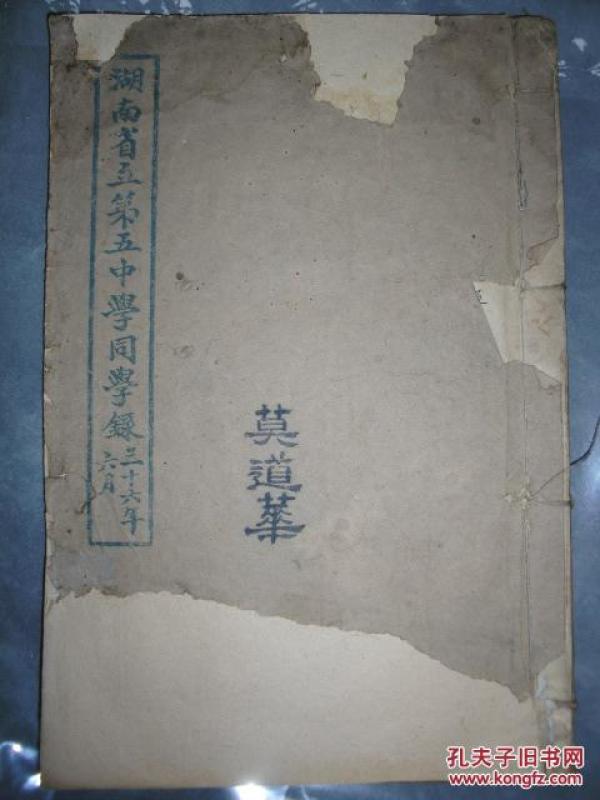 湖南省立第五中學同學錄
三十六年
六月
莫道華
孔夫子旧书网
www.kongfz.com